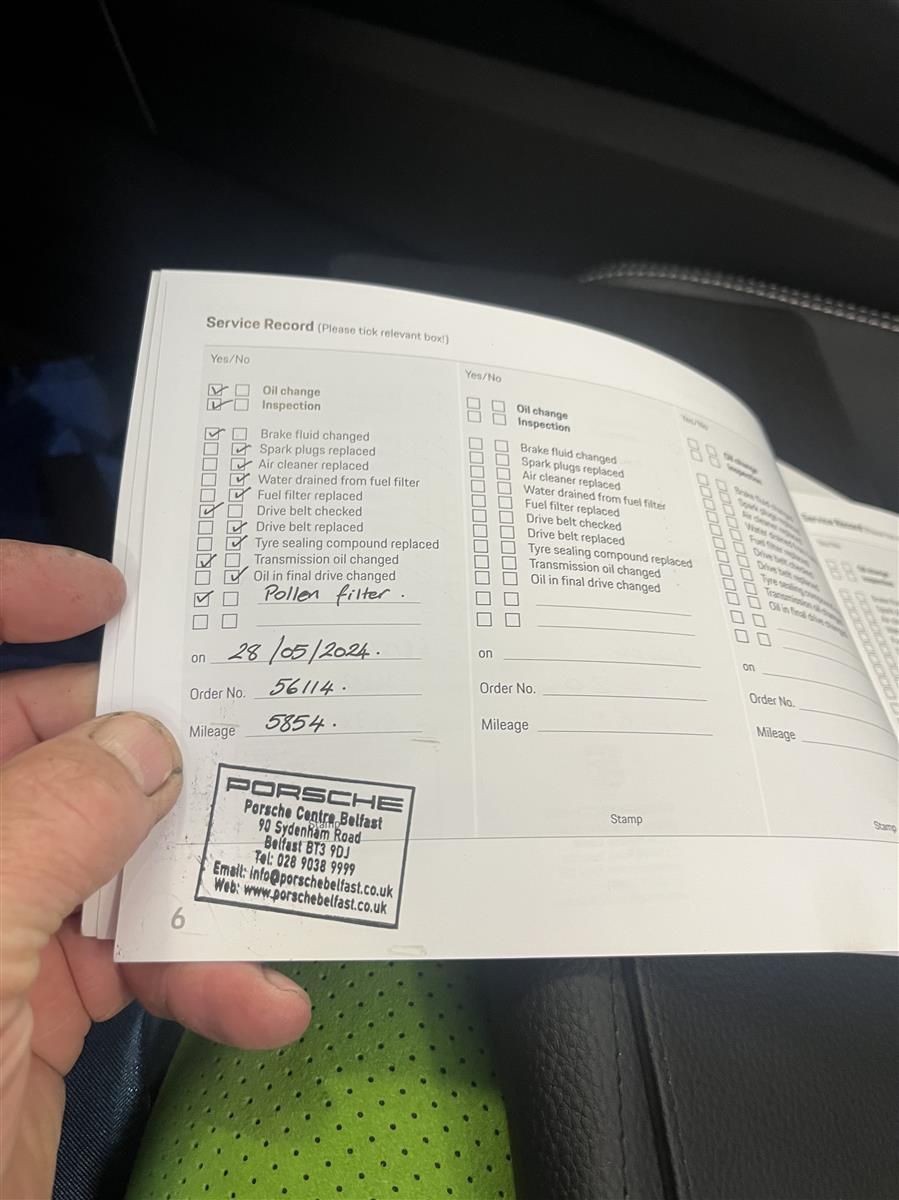 Service Record (Please tick relevant box!)
Yes/No
Oil change
Inspection
Brake fluid changed
Spark plugs replaced
Air cleaner replaced
Water drained from fuel filter
Fuel filter replaced
Drive belt checked
Drive belt replaced
Tyre sealing compound replaced
Transmission oil changed
Oil in final drive changed
Pollen filter.
on 28/05/2024.
Order No. 56114.
Mileage 5854.
Stamp
PORSCHE
Porsche Centre Belfast
90 Sydenham Road
Belfast BT3 9DJ
Tel: 028 9038 9999
Email: info@porschebelfast.co.uk
Web: www.porschebelfast.co.uk
6
Yes/No
Oil change
Inspection
Brake fluid changed
Spark plugs replaced
Air cleaner replaced
Water drained from fuel filter
Fuel filter replaced
Drive belt checked
Drive belt replaced
Tyre sealing compound replaced
Transmission oil changed
Oil in final drive changed
on
Order No.
Mileage
Stamp
Yes/No
Oil change
Inspection
Brake fluid
Spark plugs
Air cleaner
Water drained
Fuel filter
Drive belt
Drive belt
Tyre sealing
Transmission oil
Oil in final drive changed
on
Order No.
Mileage
Stamp
Service Record